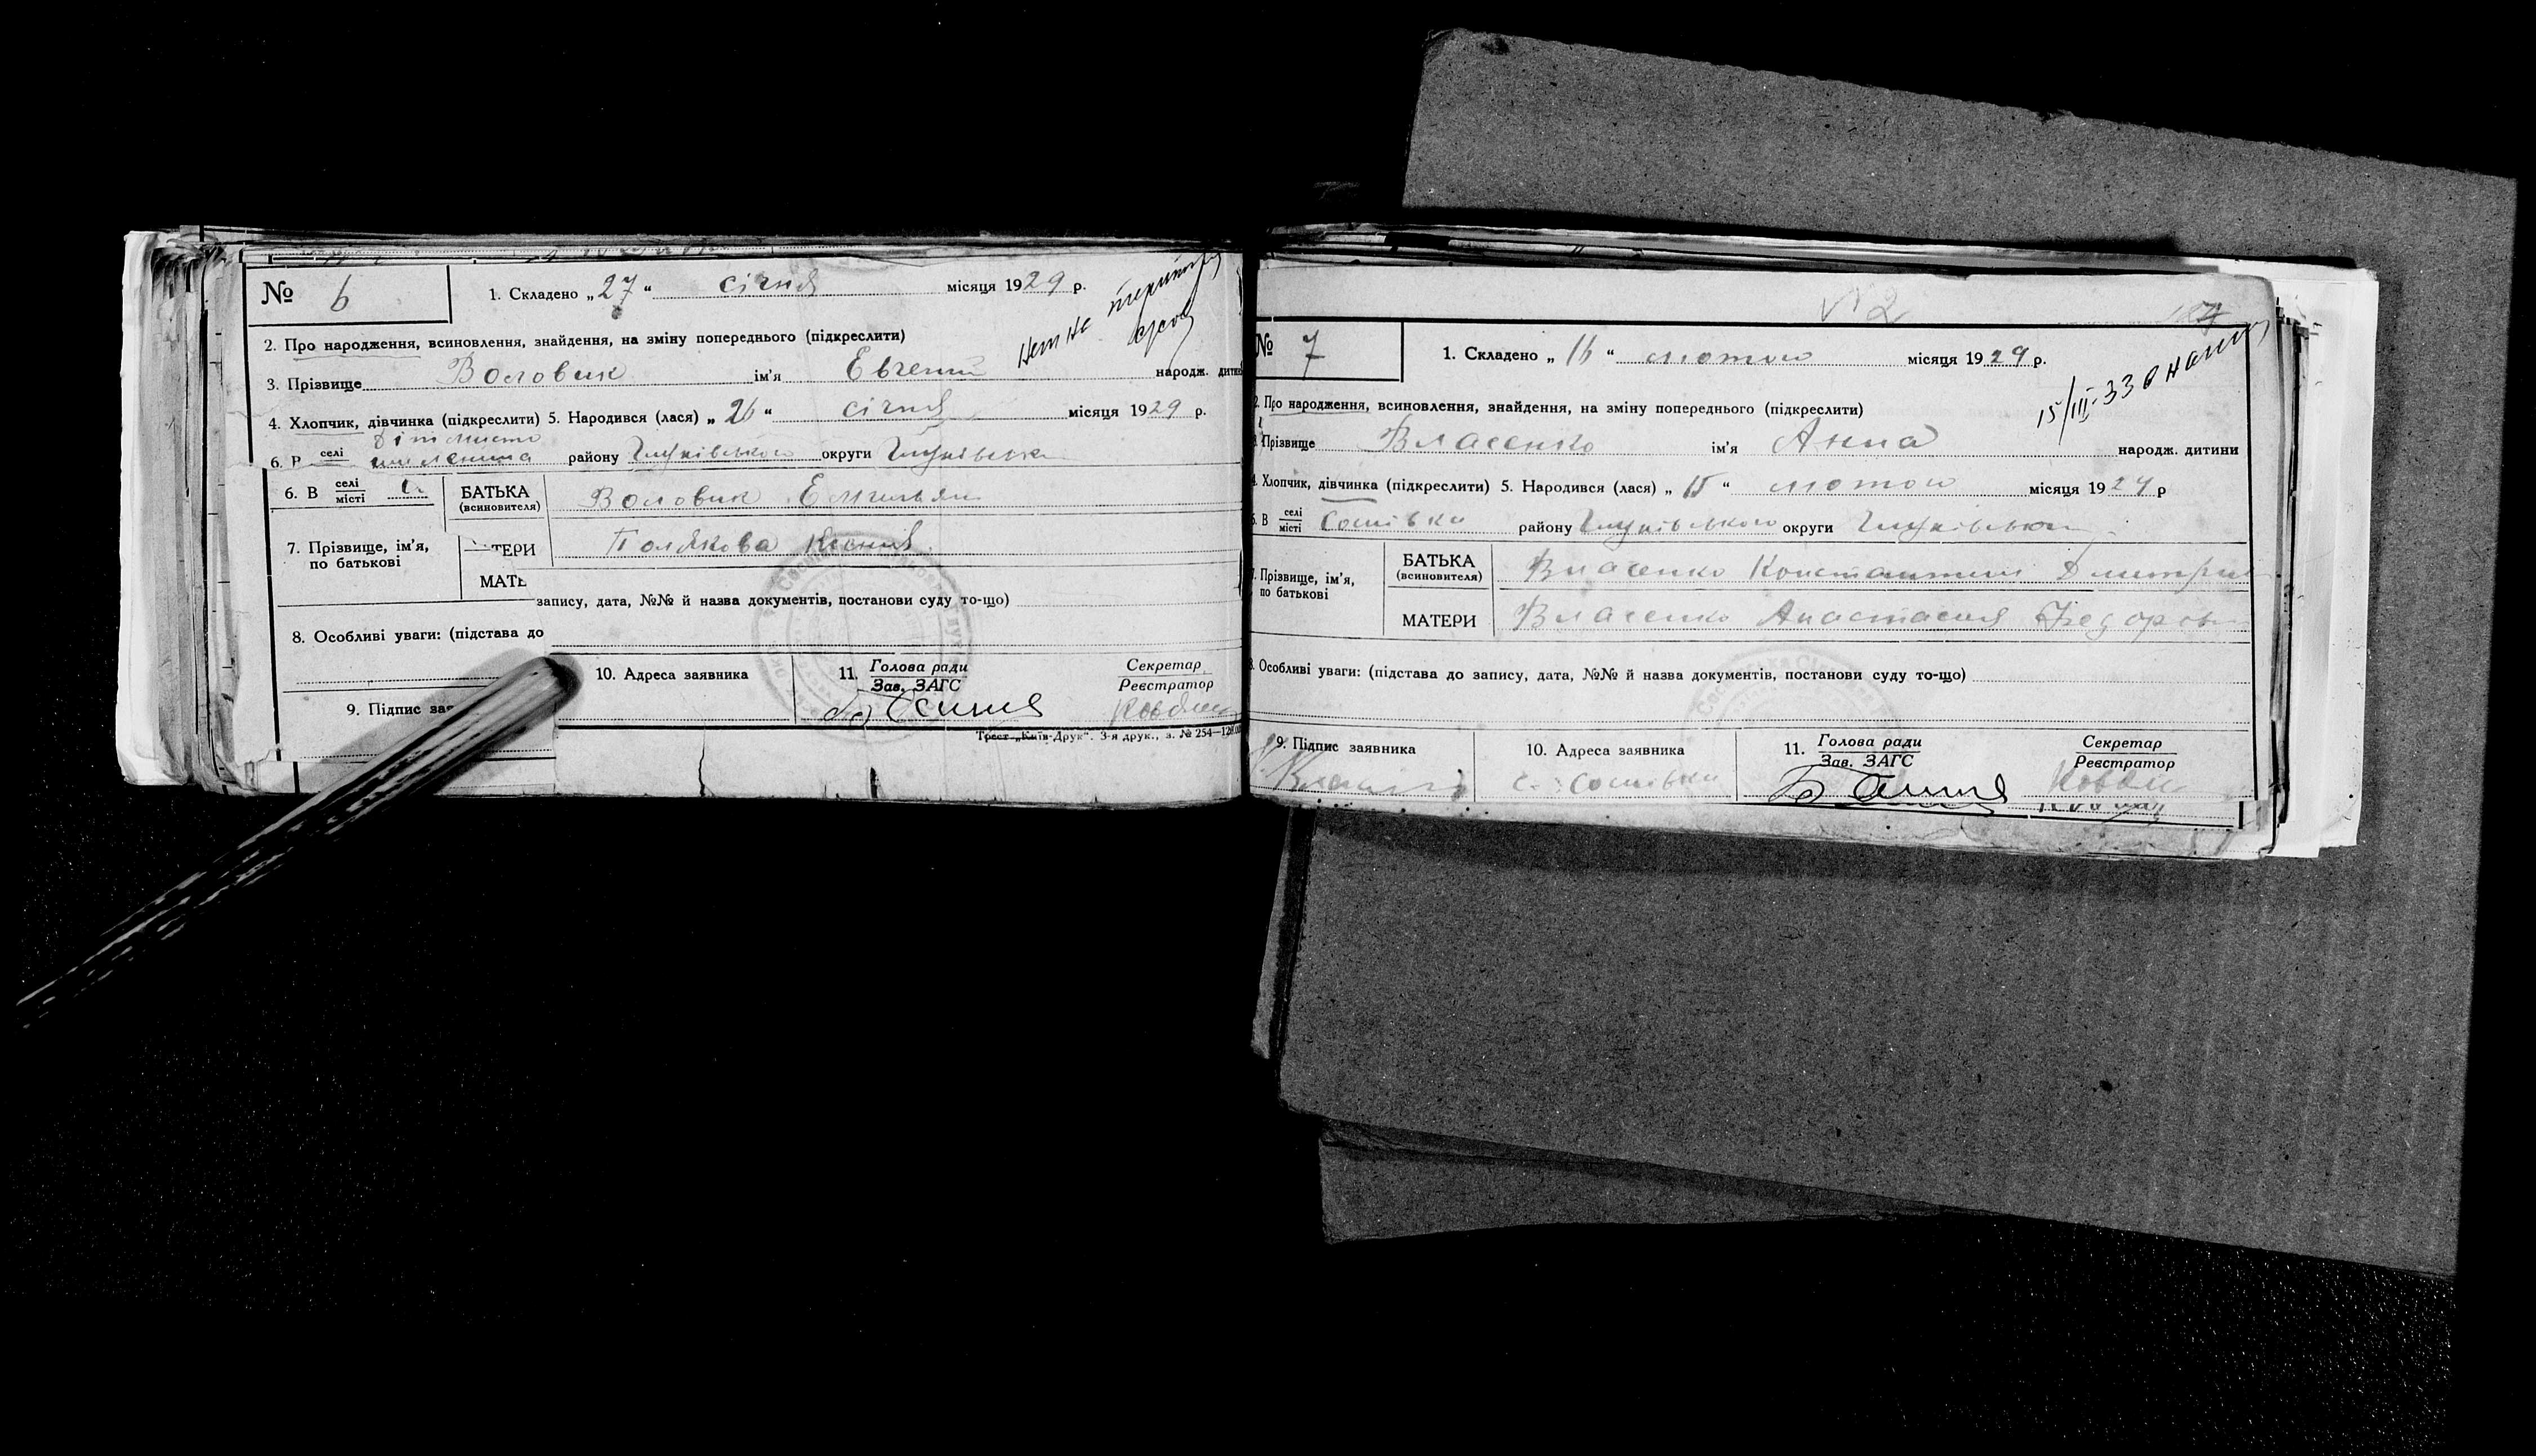 № 6
1. Складено „27“ січня місяця 1929 р.
2. Про народження, всиновлення, знайдення, на зміну попереднього (підкреслити)
3. Прізвище Воловик ім'я Евгений народж. дити
4. Хлопчик, дівчинка (підкреслити) 5. Народився (лася) „26“ січня місяця 1929 р.
6. В селі району Глухівського округи Глухівська
6. В селі місті
БАТЬКА (всиновителя) Воловик Емильян
7. Прізвище, ім'я, по батькові
ТЕРИ Полякова Ксения
МАТЕ
запису, дата, №№ й назва документів, постанови суду то-що)
8. Особливі уваги: (підстава до
9. Підпис зая
10. Адреса заявника
11. Голова ради
Зав. ЗАГС
Секретар
Реєстратор
Трест „Київ-Друк“. 3-я друк., з. № 254—12
№ 7
1. Складено „16“ лютого місяця 1929 р.
15/III-33
2. Про народження, всиновлення, знайдення, на зміну попереднього (підкреслити)
Прізвище Власенко ім'я Анна народж. дитини
4. Хлопчик, дівчинка (підкреслити) 5. Народився (лася) „15“ лютого місяця 1929 р
6. В селі місті Сошівка району Глухівського округи Глухівська
7. Прізвище, ім'я, по батькові
БАТЬКА (всиновителя) Власенко Константин Дмитри
МАТЕРИ Власенко Анастасия Федоров
8. Особливі уваги: (підстава до запису, дата, №№ й назва документів, постанови суду то-що)
9. Підпис заявника
10. Адреса заявника
с. Сошівка
11. Голова ради
Зав. ЗАГС
Секретар
Реєстратор